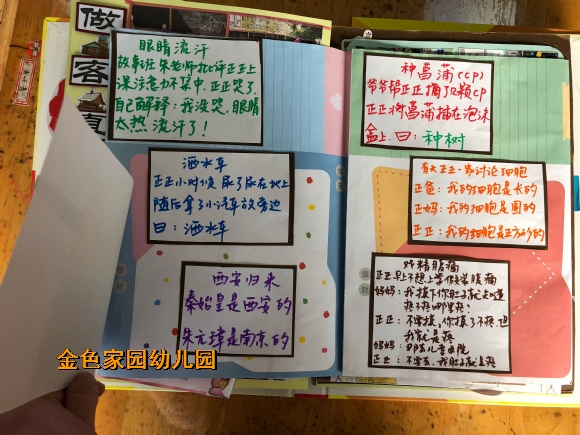 做
客
眼睛流汗
故事班朱老师批评正正上
课注意力不集中,正正哭了.
自己解释:我没哭,眼睛
太热 流汗了!
洒水车
正正小时候 尿了尿在地上
随后拿了小汽车放旁边
曰:洒水车
西安归来
秦始皇是西安的
朱元璋是南京的
种菖蒲(cp)
爷爷帮正正摘了12颗cp
正正将菖蒲插在泡沫
盒上.曰:种树
有天正正一家讨论细胞
正爸:我的细胞是长的
正妈:我的细胞是圆的
正正:我的细胞是正方形的
戏精腹痛
正正早上不想上学假装腹痛
妈妈:我摸下你肚子就知道
疼不疼 哪里疼?
正正:不需摸,你摸了不疼,也
我就是疼
妈妈:儿童医院
正正:不需去,我肚子就是疼
金色家园幼儿园